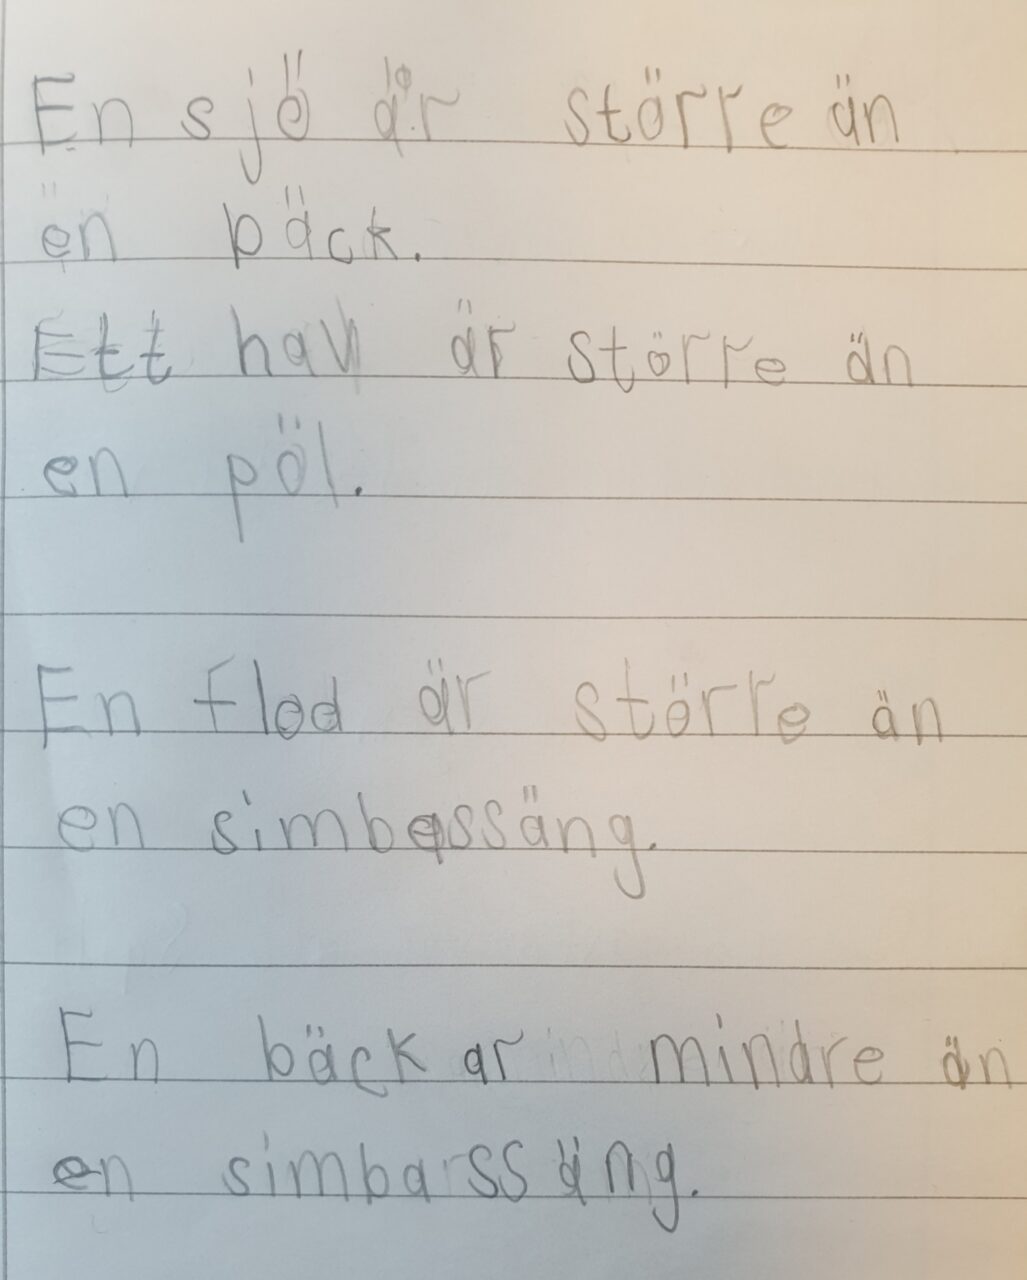 En sjö är större än
en bäck.
Ett hav är större än
en pöl.
En flod är större än
en simbassäng.
En bäck ar mindre än
en simbarssäng.